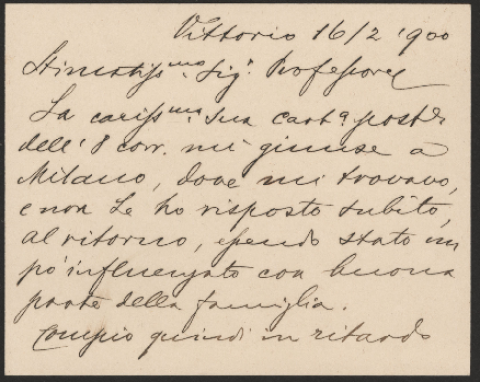 Vittorio 16/2 '900
Stimatiss.mo Sig.r Professore
La cariss.ma Sua cart.a post.e
dell' 8 corr. mi giunse a
Milano, dove mi trovavo,
e non Le ho risposto subito,
al ritorno, essendo stato un
pò influenzato con buona
parte della famiglia.
Compio quindi in ritardo